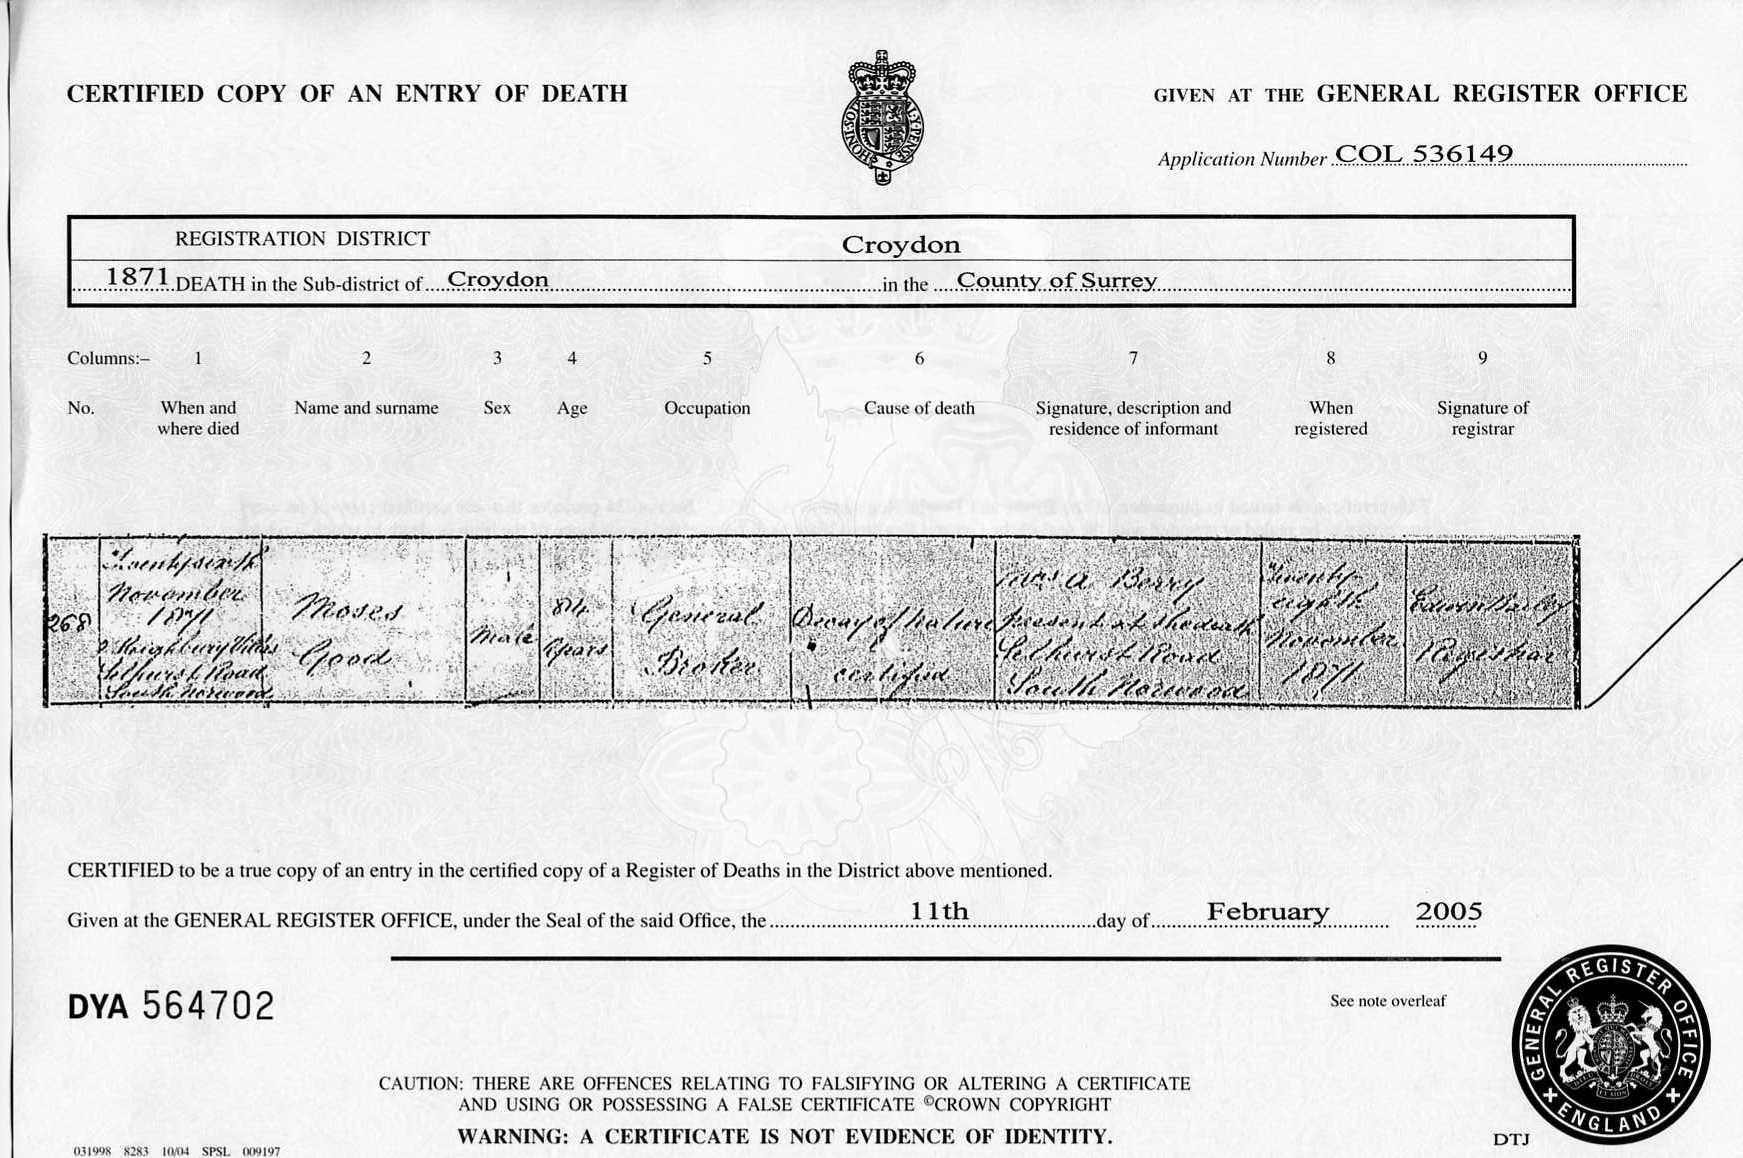 CERTIFIED COPY OF AN ENTRY OF DEATH
GIVEN AT THE GENERAL REGISTER OFFICE
Application Number COL 536149
REGISTRATION DISTRICT Croydon
1871 DEATH in the Sub-district of Croydon in the County of Surrey
Columns:– 1 2 3 4 5 6 7 8 9
No. When and where died Name and surname Sex Age Occupation Cause of death Signature, description and residence of informant When registered Signature of registrar
268
Twenty sixth
November
1871
2
Selhurst Road
South Norwood
Moses
Good
Male
84
Years
General
Broker
Decay of Nature
certified
A. Berry
present at the death
Selhurst Road
South Norwood
Twenty
eighth
November
1871
Registrar
CERTIFIED to be a true copy of an entry in the certified copy of a Register of Deaths in the District above mentioned.
Given at the GENERAL REGISTER OFFICE, under the Seal of the said Office, the 11th day of February 2005
DYA 564702
See note overleaf
GENERAL REGISTER OFFICE
ENGLAND
CAUTION: THERE ARE OFFENCES RELATING TO FALSIFYING OR ALTERING A CERTIFICATE
AND USING OR POSSESSING A FALSE CERTIFICATE ©CROWN COPYRIGHT
WARNING: A CERTIFICATE IS NOT EVIDENCE OF IDENTITY.
031998 8283 10/04 SPSL 009197
DTJ